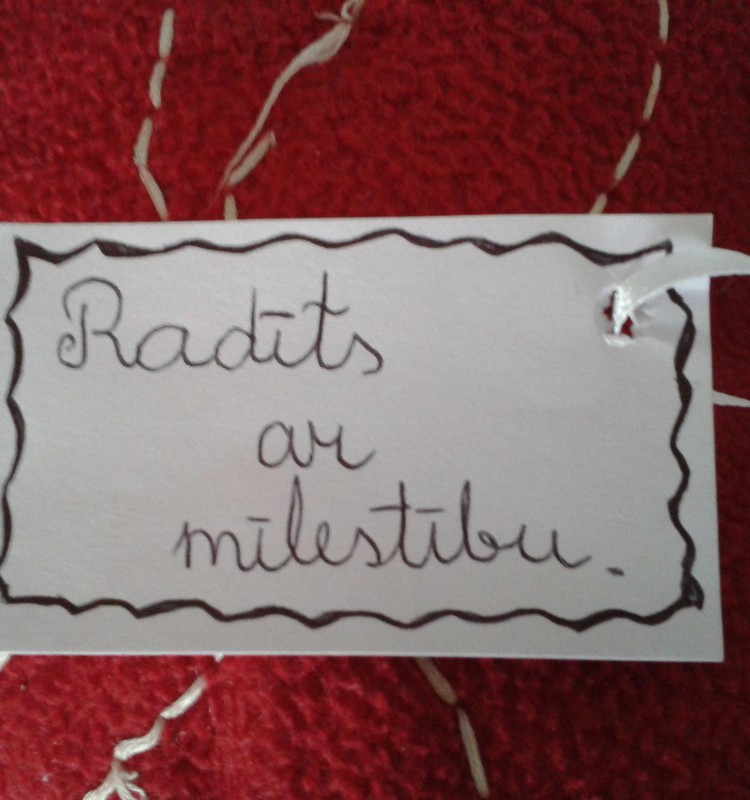 Radīts
ar
mīlestību.